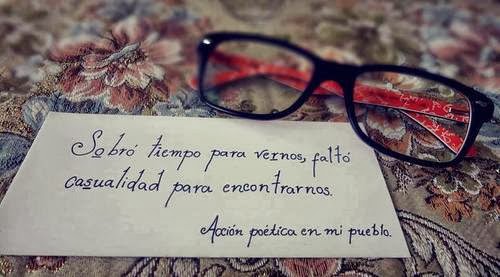 Sobró tiempo para vernos, faltó
casualidad para encontrarnos.
Acción poética en mi pueblo.